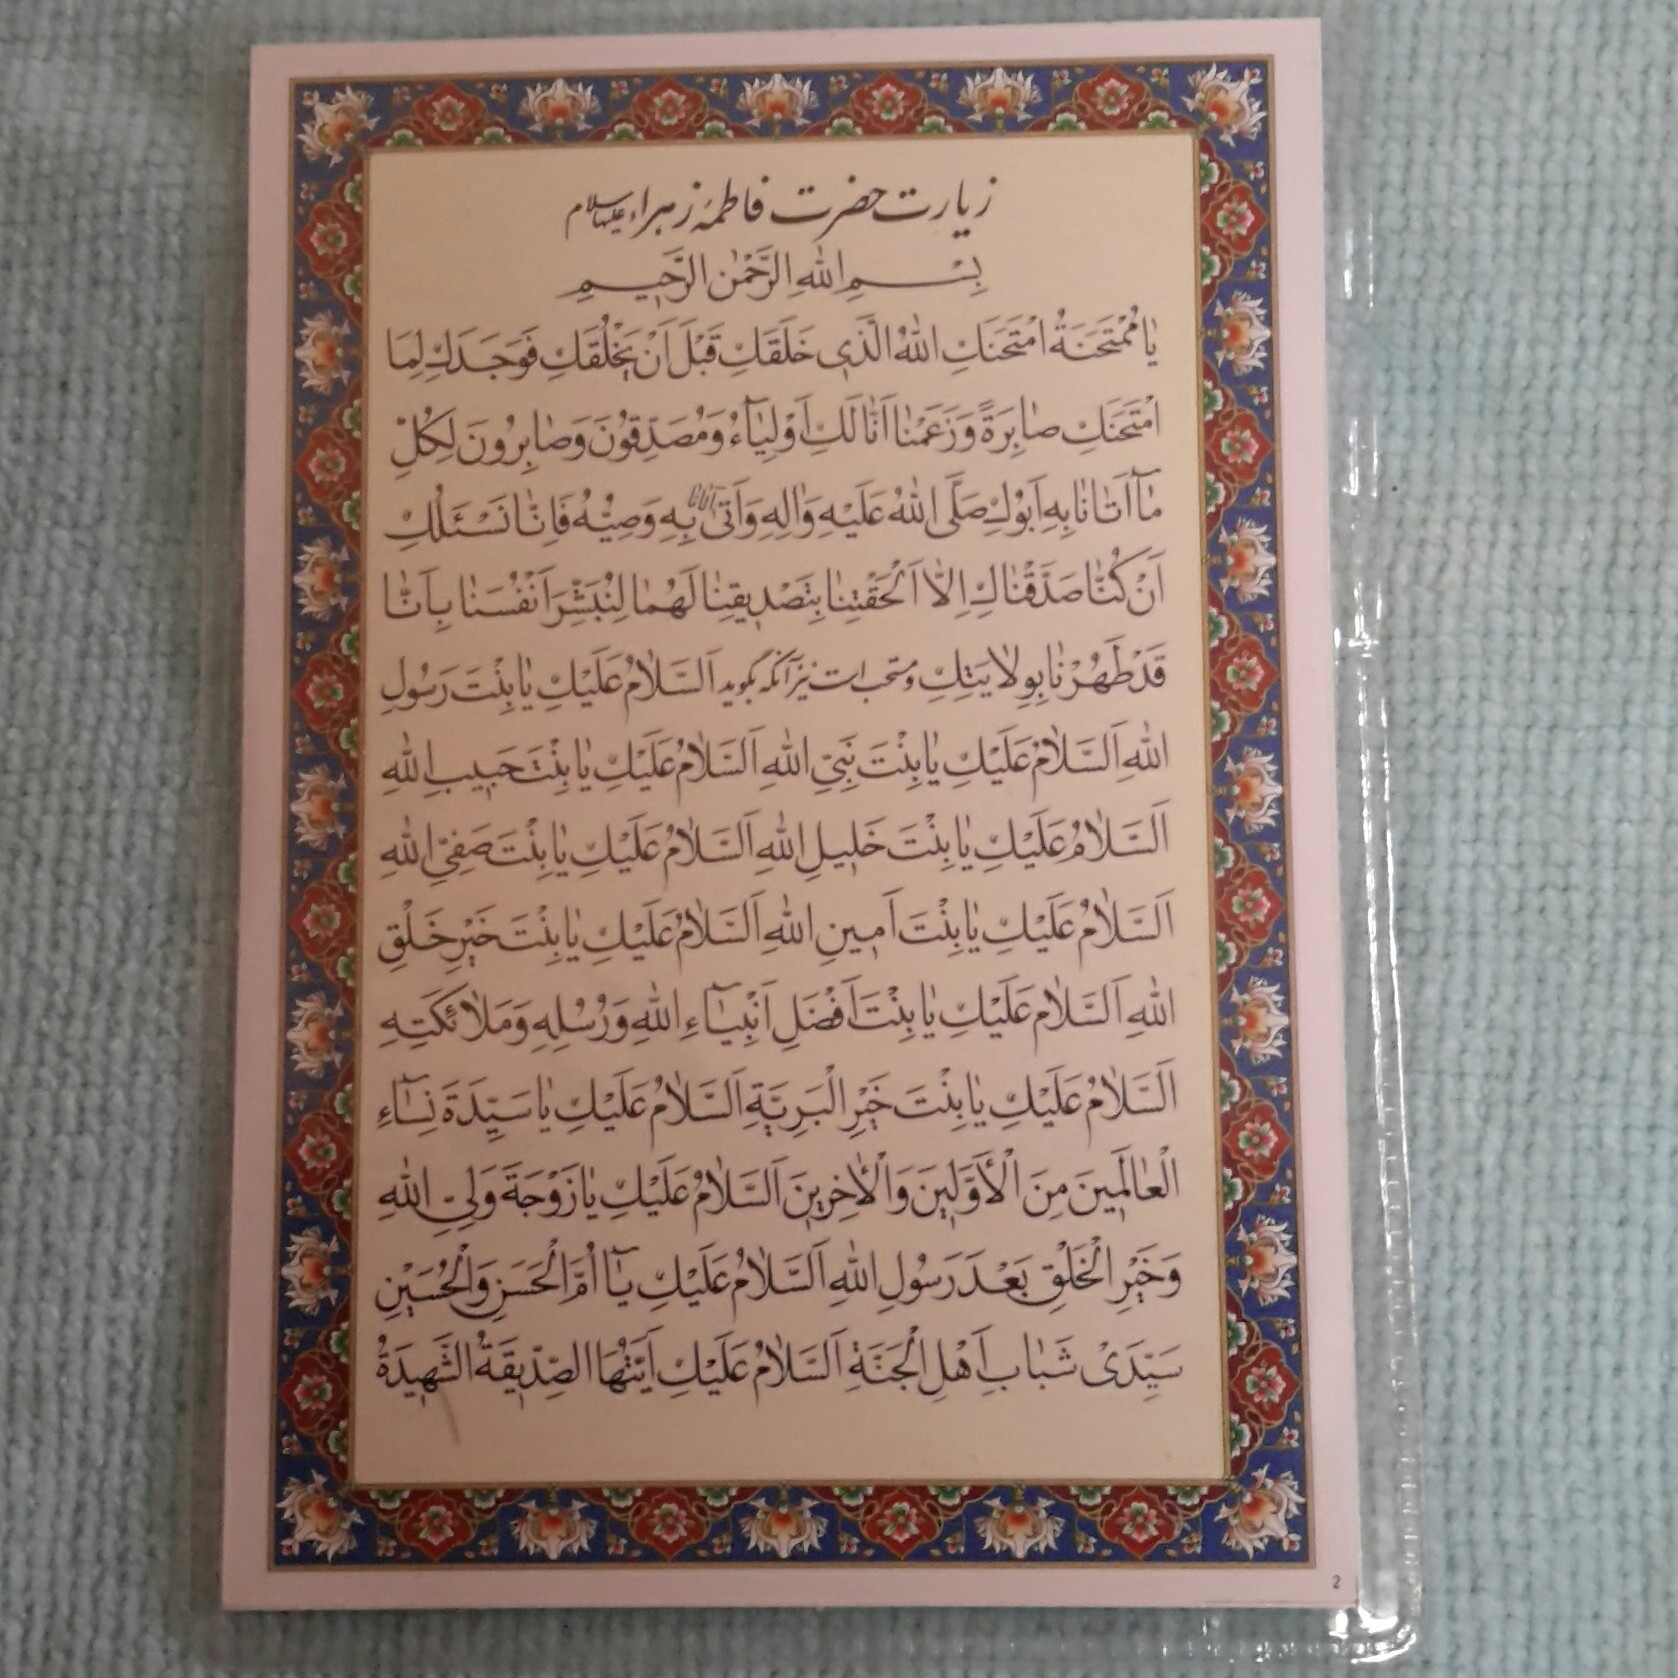 زیارت حضرت فاطمهٔ زهراء علیهاسلام
بِسْمِ اللهِ الرَّحْمٰنِ الرَّحیمِ
یٰا مُمْتَحَنَةُ امْتَحَنَكِ اللهُ الَّذی خَلَقَكِ قَبْلَ اَنْ یَخْلُقَكِ فَوَجَدَكِ لِمَا
امْتَحَنَكِ صٰابِرَةً وَزَعَمْنٰا اَنّٰا لَكِ اَوْلِیٰآءُ وَمُصَدِّقُونَ وَصٰابِرُونَ لِكُلِّ
مٰآ اَتٰانٰا بِهِ اَبُوكِ صَلَّی اللهُ عَلَیْهِ وَاٰلِهِ وَاَتیٰ اَتٰانٰا بِهِ وَصِیُّهُ فَاِنّٰا نَسْئَلُكِ
اَنْ كُنّٰا صَدَّقْنٰاكِ اِلّٰا اَلْحَقْتِنٰا بِتَصْدیقِنٰا لَهُمٰا لِنُبَشِّرَ اَنْفُسَنٰا بِاَنّٰا
قَدْ طَهُرْنٰا بِوِلٰایَتِكِ ومستحب است نیز آنكه بگوید اَلسَّلٰامُ عَلَیْكِ یٰا بِنْتَ رَسُولِ
اللهِ اَلسَّلٰامُ عَلَیْكِ یٰا بِنْتَ نَبِیِّ اللهِ اَلسَّلٰامُ عَلَیْكِ یٰا بِنْتَ حَبیبِ اللهِ
اَلسَّلٰامُ عَلَیْكِ یٰا بِنْتَ خَلیلِ اللهِ اَلسَّلٰامُ عَلَیْكِ یٰا بِنْتَ صَفِیِّ اللهِ
اَلسَّلٰامُ عَلَیْكِ یٰا بِنْتَ اَمینِ اللهِ اَلسَّلٰامُ عَلَیْكِ یٰا بِنْتَ خَیْرِ خَلْقِ
اللهِ اَلسَّلٰامُ عَلَیْكِ یٰا بِنْتَ اَفْضَلِ اَنْبِیٰآءِ اللهِ وَرُسُلِهِ وَمَلٰائكَتِهِ
اَلسَّلٰامُ عَلَیْكِ یٰا بِنْتَ خَیْرِ الْبَرِیَّةِ اَلسَّلٰامُ عَلَیْكِ یٰا سَیِّدَةَ نِسٰآءِ
الْعٰالَمینَ مِنَ الْأَوَّلینَ وَالْأٰخِرینَ اَلسَّلٰامُ عَلَیْكِ یٰا زَوْجَةَ وَلِیِّ اللهِ
وَخَیْرِ الْخَلْقِ بَعْدَ رَسُولِ اللهِ اَلسَّلٰامُ عَلَیْكِ یٰآ اُمَّ الْحَسَنِ وَالْحُسَیْنِ
سَیِّدَیْ شَبٰابِ اَهْلِ الْجَنَّةِ اَلسَّلٰامُ عَلَیْكِ اَیَّتُهَا الصِّدّیقَةُ الشَّهیدَةُ
2